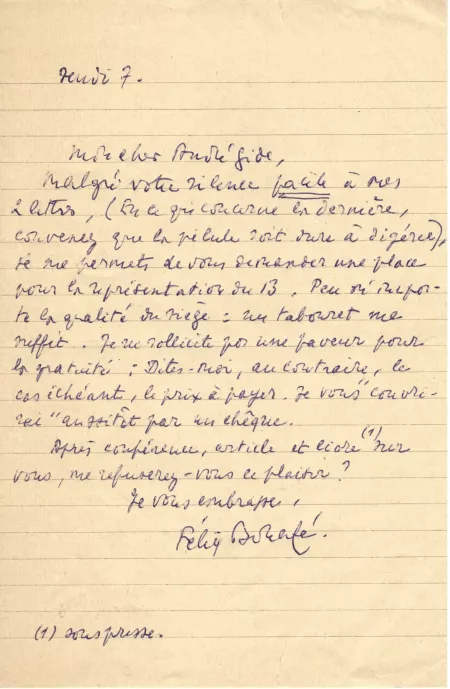 Jeudi 7.
Mon cher André Gide,
Malgré votre silence facile à mes
2 lettres, (En ce qui concerne la dernière,
convenez que la pilule soit dure à digérer),
je me permets de vous demander une place
pour la représentation du 13. Peu m'impor-
te la qualité du siège : un tabouret me
suffit. Je ne sollicite pas une faveur pour
la gratuité ; Dites-moi, au contraire, le
cas échéant, le prix à payer. Je vous "couvri-
rai" aussitôt par un chèque.
Après conférence, article et livre (1) sur
vous, me refuserez-vous ce plaisir ?
Je vous embrasse,
Félix
(1) sous presse.